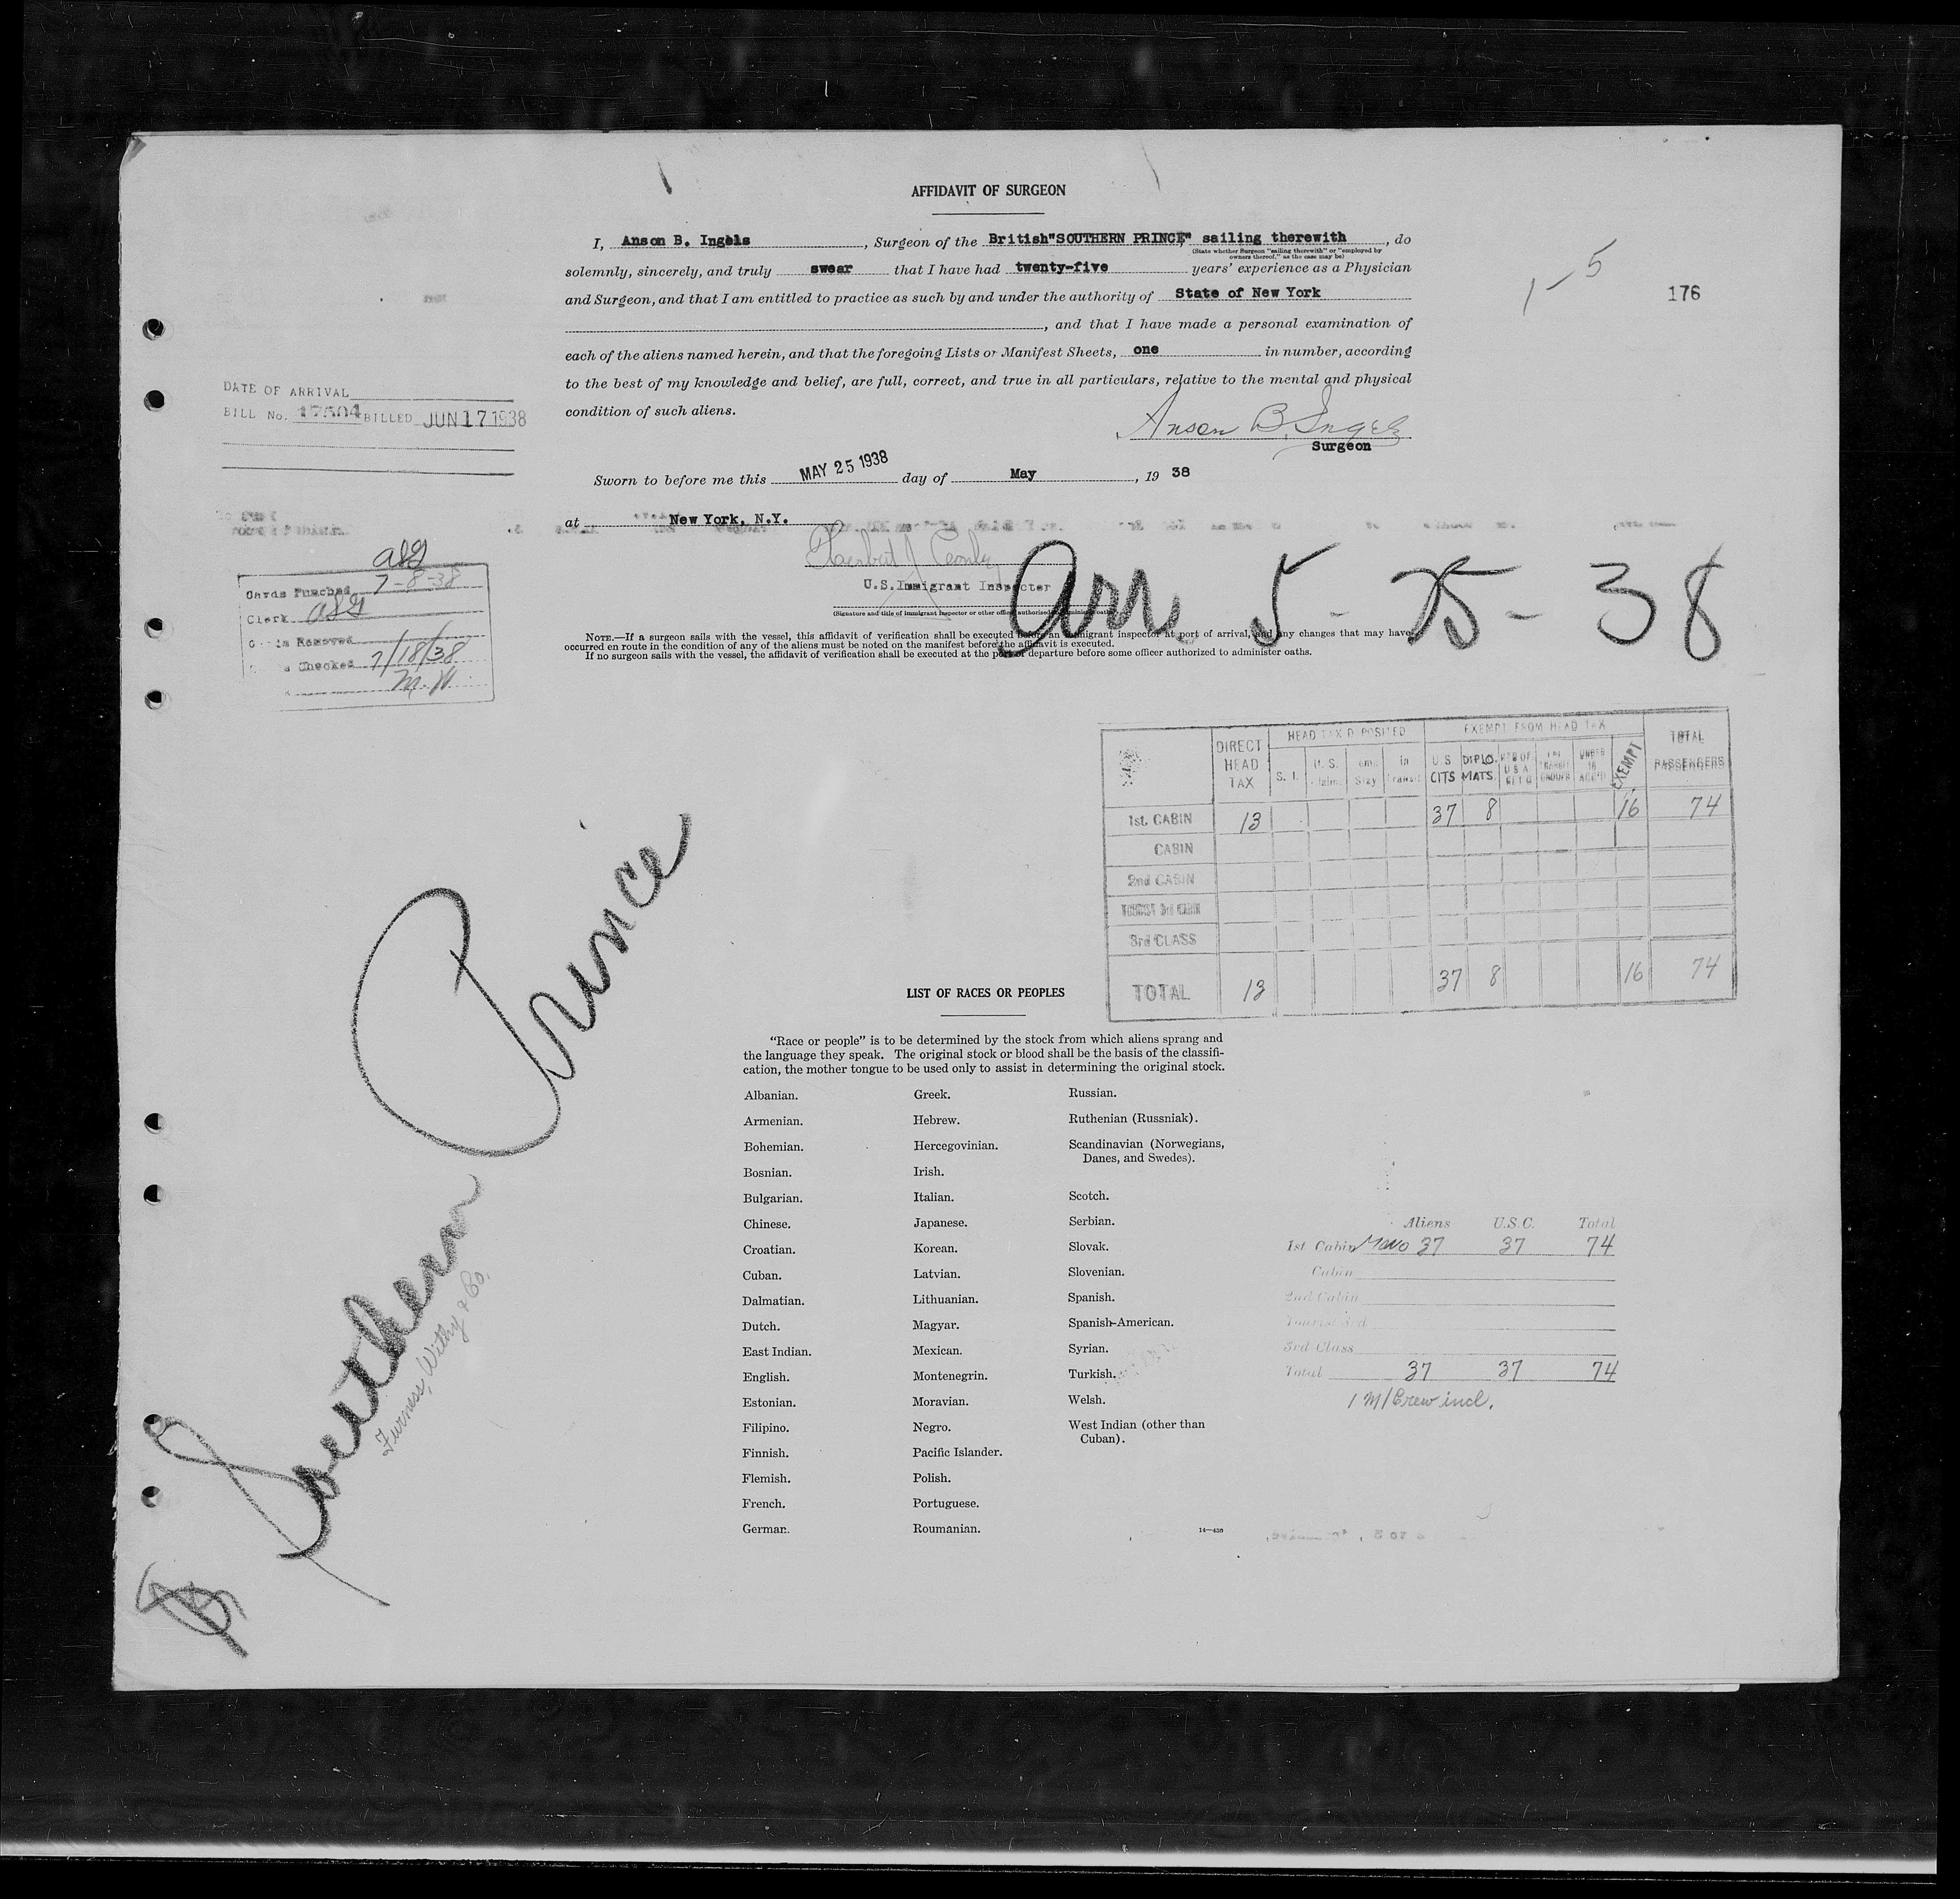 AFFIDAVIT OF SURGEON
I, Anson B. Ingels, Surgeon of the British "SOUTHERN PRINCE" sailing therewith, do
(State whether Surgeon "sailing therewith" or "employed by owners thereof," as the case may be)
solemnly, sincerely, and truly swear that I have had twenty-five years' experience as a Physician
and Surgeon, and that I am entitled to practice as such by and under the authority of State of New York
, and that I have made a personal examination of
each of the aliens named herein, and that the foregoing Lists or Manifest Sheets, one in number, according
to the best of my knowledge and belief, are full, correct, and true in all particulars, relative to the mental and physical
condition of such aliens.
1-5
176
DATE OF ARRIVAL
BILL No. 17504 BILLED JUN 17 1938
Anson B. Ingels
Surgeon
Sworn to before me this MAY 25 1938 day of May, 19 38
at New York, N.Y.
U.S. Immigrant Inspector
(Signature and title of immigrant inspector or other officer authorized to administer oaths)
Arr 5-25-38
Cards Punched 7-8-38
Clerk
Removed
Checked 7/18/38
NOTE.—If a surgeon sails with the vessel, this affidavit of verification shall be executed before an immigrant inspector at port of arrival, and any changes that may have
occurred en route in the condition of any of the aliens must be noted on the manifest before the affidavit is executed.
If no surgeon sails with the vessel, the affidavit of verification shall be executed at the port of departure before some officer authorized to administer oaths.
DIRECT HEAD TAX
HEAD TAX DEPOSITED
S. I.
U. S.
in Transit
EXEMPT FROM HEAD TAX
U S CITS
DIPLO. MATS.
EXEMPT
TOTAL PASSENGERS
1st. CABIN 13 37 8 16 74
CABIN
2nd CABIN
TOURIST 3rd CABIN
3rd CLASS
TOTAL 13 37 8 16 74
Southern Prince
Furness, Withy & Co.
LIST OF RACES OR PEOPLES
"Race or people" is to be determined by the stock from which aliens sprang and
the language they speak. The original stock or blood shall be the basis of the classifi-
cation, the mother tongue to be used only to assist in determining the original stock.
Albanian.
Armenian.
Bohemian.
Bosnian.
Bulgarian.
Chinese.
Croatian.
Cuban.
Dalmatian.
Dutch.
East Indian.
English.
Estonian.
Filipino.
Finnish.
Flemish.
French.
German.
Greek.
Hebrew.
Hercegovinian.
Irish.
Italian.
Japanese.
Korean.
Latvian.
Lithuanian.
Magyar.
Mexican.
Montenegrin.
Moravian.
Negro.
Pacific Islander.
Polish.
Portuguese.
Roumanian.
Russian.
Ruthenian (Russniak).
Scandinavian (Norwegians,
Danes, and Swedes).
Scotch.
Serbian.
Slovak.
Slovenian.
Spanish.
Spanish-American.
Syrian.
Turkish.
Welsh.
West Indian (other than
Cuban).
14—430
Aliens U.S.C. Total
1st Cabin 37 37 74
Cabin
2nd Cabin
Tourist 3rd
3rd Class
Total 37 37 74
1 M/Crew incl.